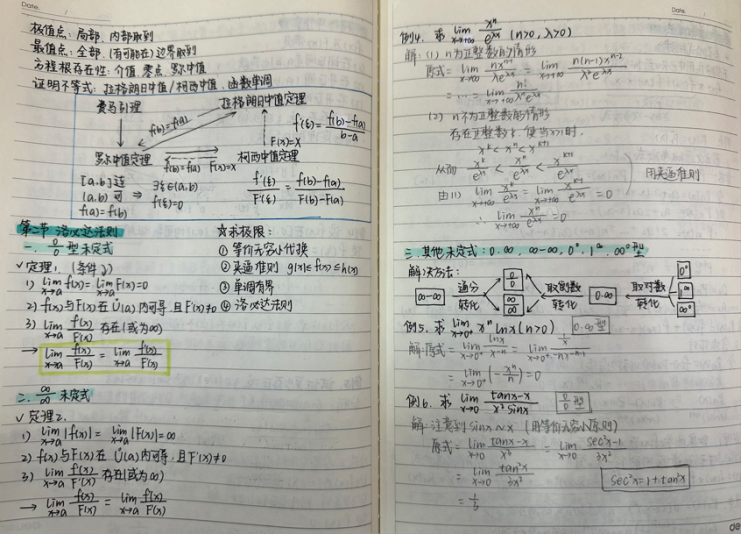 Date.
极值点：局部，内部取到
最值点：全部，(有可能在) 边界取到
方程根存在性：介值，零点，罗尔中值
证明不等式：拉格朗日中值/柯西中值，函数单调
费马引理
拉格朗日中值定理
f(b)=f(a)
f'(ξ)=\frac{f(b)-f(a)}{b-a}
F(x)=x
罗尔中值定理
f(b)=f(a) F(x)=x
柯西中值定理
[a,b]连
(a,b)可 ⇒ ∃ξ∈(a,b)
f(a)=f(b) f'(ξ)=0
\frac{f'(ξ)}{F'(ξ)}=\frac{f(b)-f(a)}{F(b)-F(a)}
第二节 洛必达法则
一、\frac{0}{0}型未定式
✓定理1. (条件3)
1) \lim_{x→a}f(x)=\lim_{x→a}F(x)=0
2) f(x)与F(x)在Ů(a)内可导，且F'(x)≠0
3) \lim_{x→a}\frac{f'(x)}{F'(x)}存在(或为∞)
→ \lim_{x→a}\frac{f(x)}{F(x)}=\lim_{x→a}\frac{f'(x)}{F'(x)}
☆求极限：
① 等价无穷小代换
② 夹逼准则 g(x)≤f(x)≤h(x)
③ 单调有界
④ 洛必达法则
二、\frac{∞}{∞}未定式
✓定理2.
1) \lim_{x→a}|f(x)|=\lim_{x→a}|F(x)|=∞
2) f(x)与F(x)在Ů(a)内可导，且F'(x)≠0
3) \lim_{x→a}\frac{f'(x)}{F'(x)}存在(或为∞)
→ \lim_{x→a}\frac{f(x)}{F(x)}=\lim_{x→a}\frac{f'(x)}{F'(x)}
Date.
例4. 求 \lim_{x→+∞}\frac{x^n}{e^{λx}} (n>0,λ>0)
解：(1) n为正整数的情形
原式=\lim_{x→+∞}\frac{nx^{n-1}}{λe^{λx}}=\lim_{x→+∞}\frac{n(n-1)x^{n-2}}{λ^2e^{λx}}
(2) n不为正整数的情形
存在正整数k，使当x>1时，
x^k<x^n<x^{k+1}
从而 \frac{x^k}{e^{λx}}<\frac{x^n}{e^{λx}}<\frac{x^{k+1}}{e^{λx}}
由(1) \lim_{x→+∞}\frac{x^k}{e^{λx}}=\lim_{x→+∞}\frac{x^{k+1}}{e^{λx}}=0
用夹逼准则
∴ \lim_{x→+∞}\frac{x^n}{e^{λx}}=0
三、其他未定式：0·∞，∞-∞，0^0，1^∞，∞^0型
解决方法：
∞-∞
通分
转化
\frac{0}{0}
\frac{∞}{∞}
取倒数
转化
0·∞
取对数
转化
0^0
1^∞
∞^0
例5. 求 \lim_{x→0^+}x^n lnx (n>0) 0·∞型
解：原式=\lim_{x→0^+}\frac{lnx}{x^{-n}}=\lim_{x→0^+}\frac{\frac{1}{x}}{-nx^{-n-1}}
=\lim_{x→0^+}(-\frac{x^n}{n})=0
例6. 求 \lim_{x→0}\frac{tanx-x}{x^2sinx} \frac{0}{0}型
解：注意到sinx~x (用等价无穷小原则)
原式=\lim_{x→0}\frac{tanx-x}{x^3}=\lim_{x→0}\frac{sec^2x-1}{3x^2}
=\lim_{x→0}\frac{tan^2x}{3x^2}
sec^2x=1+tan^2x
=\frac{1}{3}